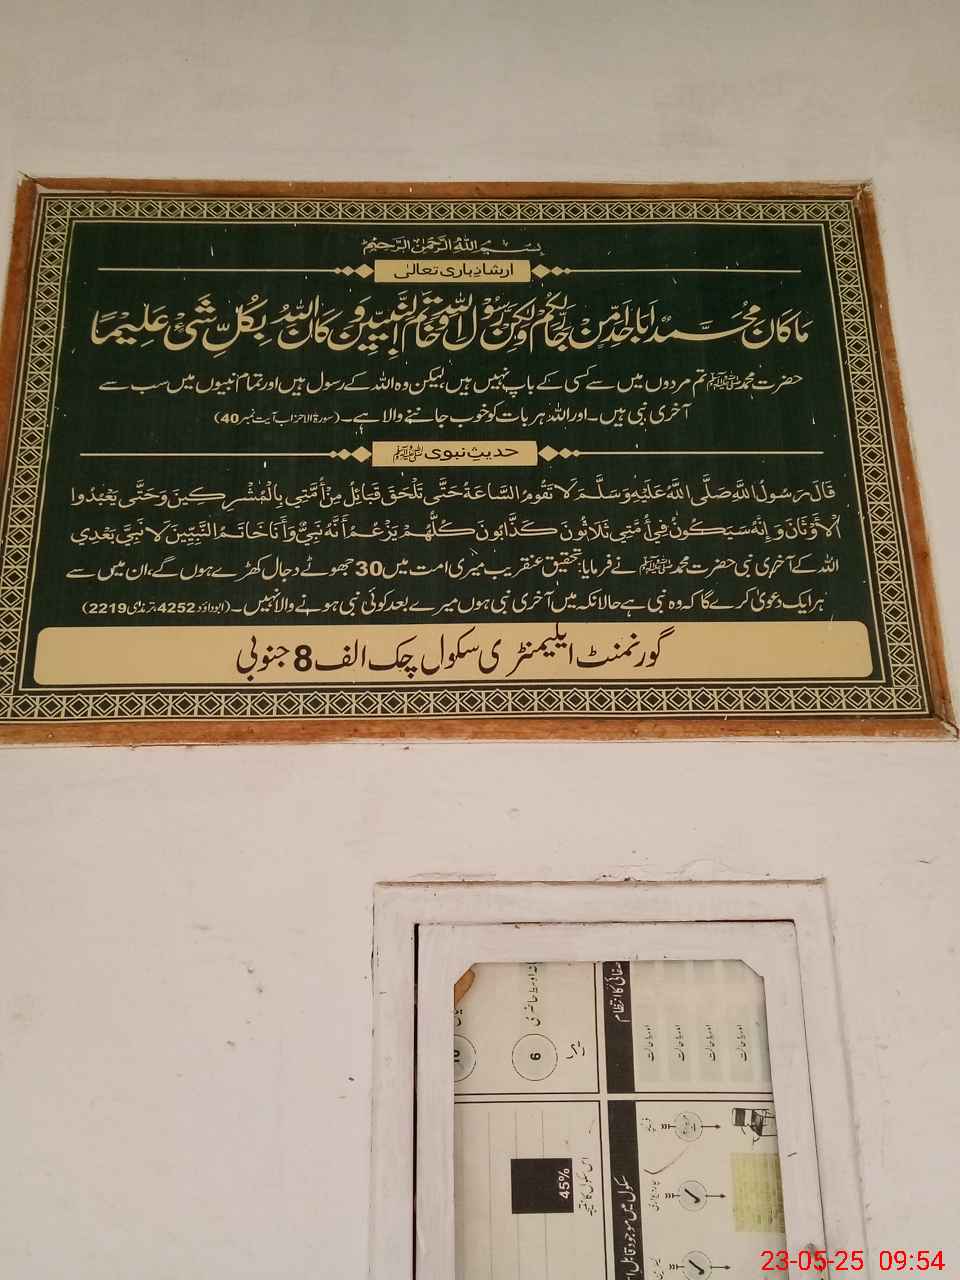 بسم الله الرحمن الرحیم
ارشاد باری تعالیٰ
مَا كَانَ مُحَمَّدٌ أَبَا أَحَدٍ مِّن رِّجَالِكُمْ وَلَٰكِن رَّسُولَ اللَّهِ وَخَاتَمَ النَّبِيِّينَ وَكَانَ اللَّهُ بِكُلِّ شَيْءٍ عَلِيمًا
حضرت محمد ﷺ تم مردوں میں سے کسی کے باپ نہیں ہیں، لیکن وہ اللہ کے رسول ہیں اور تمام نبیوں میں سب سے
آخری نبی ہیں۔ اور اللہ ہر بات کو خوب جاننے والا ہے۔ (سورۃ الاحزاب آیت نمبر 40)
حدیثِ نبوی ﷺ
قَالَ رَسُولُ اللَّهِ صَلَّى اللَّهُ عَلَيْهِ وَسَلَّمَ لَا تَقُومُ السَّاعَةُ حَتَّى تَلْحَقَ قَبَائِلُ مِنْ أُمَّتِي بِالْمُشْرِكِينَ وَحَتَّى يَعْبُدُوا
الْأَوْثَانَ وَإِنَّهُ سَيَكُونُ فِي أُمَّتِي ثَلَاثُونَ كَذَّابُونَ كُلُّهُمْ يَزْعُمُ أَنَّهُ نَبِيٌّ وَأَنَا خَاتَمُ النَّبِيِّينَ لَا نَبِيَّ بَعْدِي
اللہ کے آخری نبی حضرت محمد ﷺ نے فرمایا: تحقیق عنقریب میری امت میں 30 جھوٹے دجال کھڑے ہوں گے، ان میں سے
ہر ایک دعویٰ کرے گا کہ وہ نبی ہے حالانکہ میں آخری نبی ہوں میرے بعد کوئی نبی ہونے والا نہیں۔ (ابوداؤد 4252، ترمذی 2219)
گورنمنٹ ایلیمنٹری سکول چک الف 8 جنوبی
صفائی کا انتظام
اوسط حالت
اوسط حالت
اوسط حالت
اوسط حالت
اوسط حاضری
10
6
اس سکول کا نتیجہ
45%
سکول میں موجود قابل
23-05-25 09:54